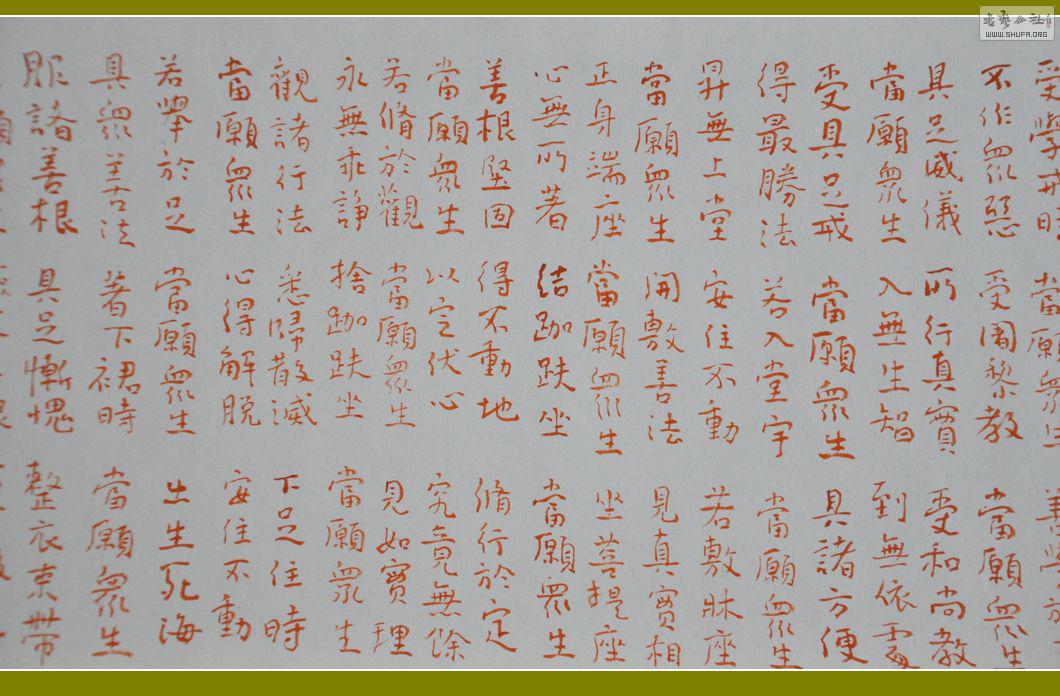 受學戒時 當願眾生 善學於
不作眾惡 受闍黎教 當願眾生
具足威儀 所行真實 受和尚教
當願眾生 入無生智 到無依處
受具足戒 當願眾生 具諸方便
得最勝法 若入堂宇 當願眾生
昇無上堂 安住不動 若敷牀座
當願眾生 開敷善法 見真實相
正身端座 當願眾生 坐菩提座
心無所著 結跏趺坐 當願眾生
善根堅固 得不動地 脩行於定
當願眾生 以定伏心 究竟無餘
若脩於觀 當願眾生 見如實理
永無乖諍 捨跏趺坐 當願眾生
觀諸行法 悉歸散滅 下足住時
當願眾生 心得解脫 安住不動
若舉於足 當願眾生 出生死海
具眾善法 著下裙時 當願眾生
服諸善根 具足慚愧 整衣束帶
WWW.SHUFA.ORG